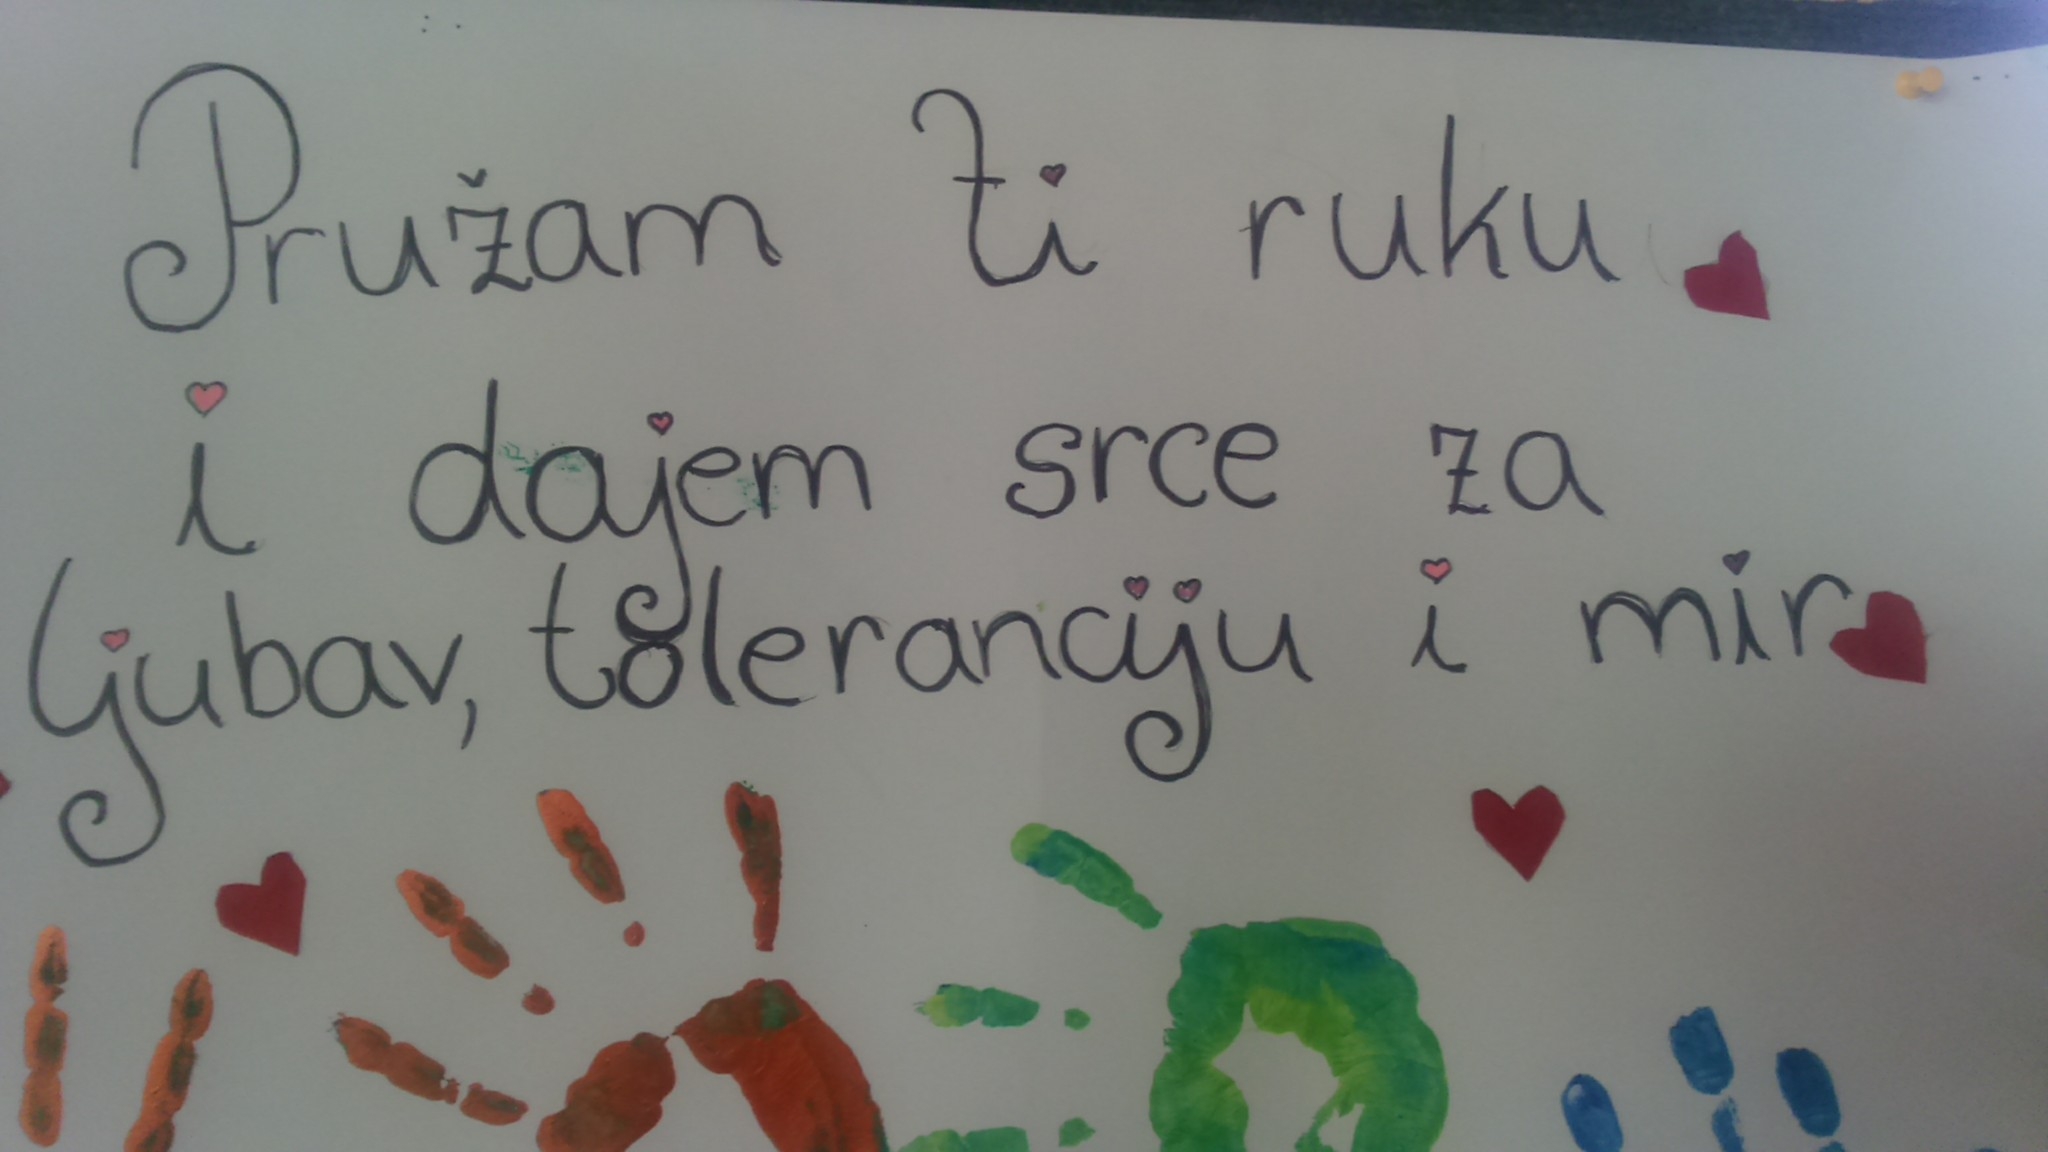 Pružam ti ruku
i dajem srce za
ljubav, toleranciju i mir